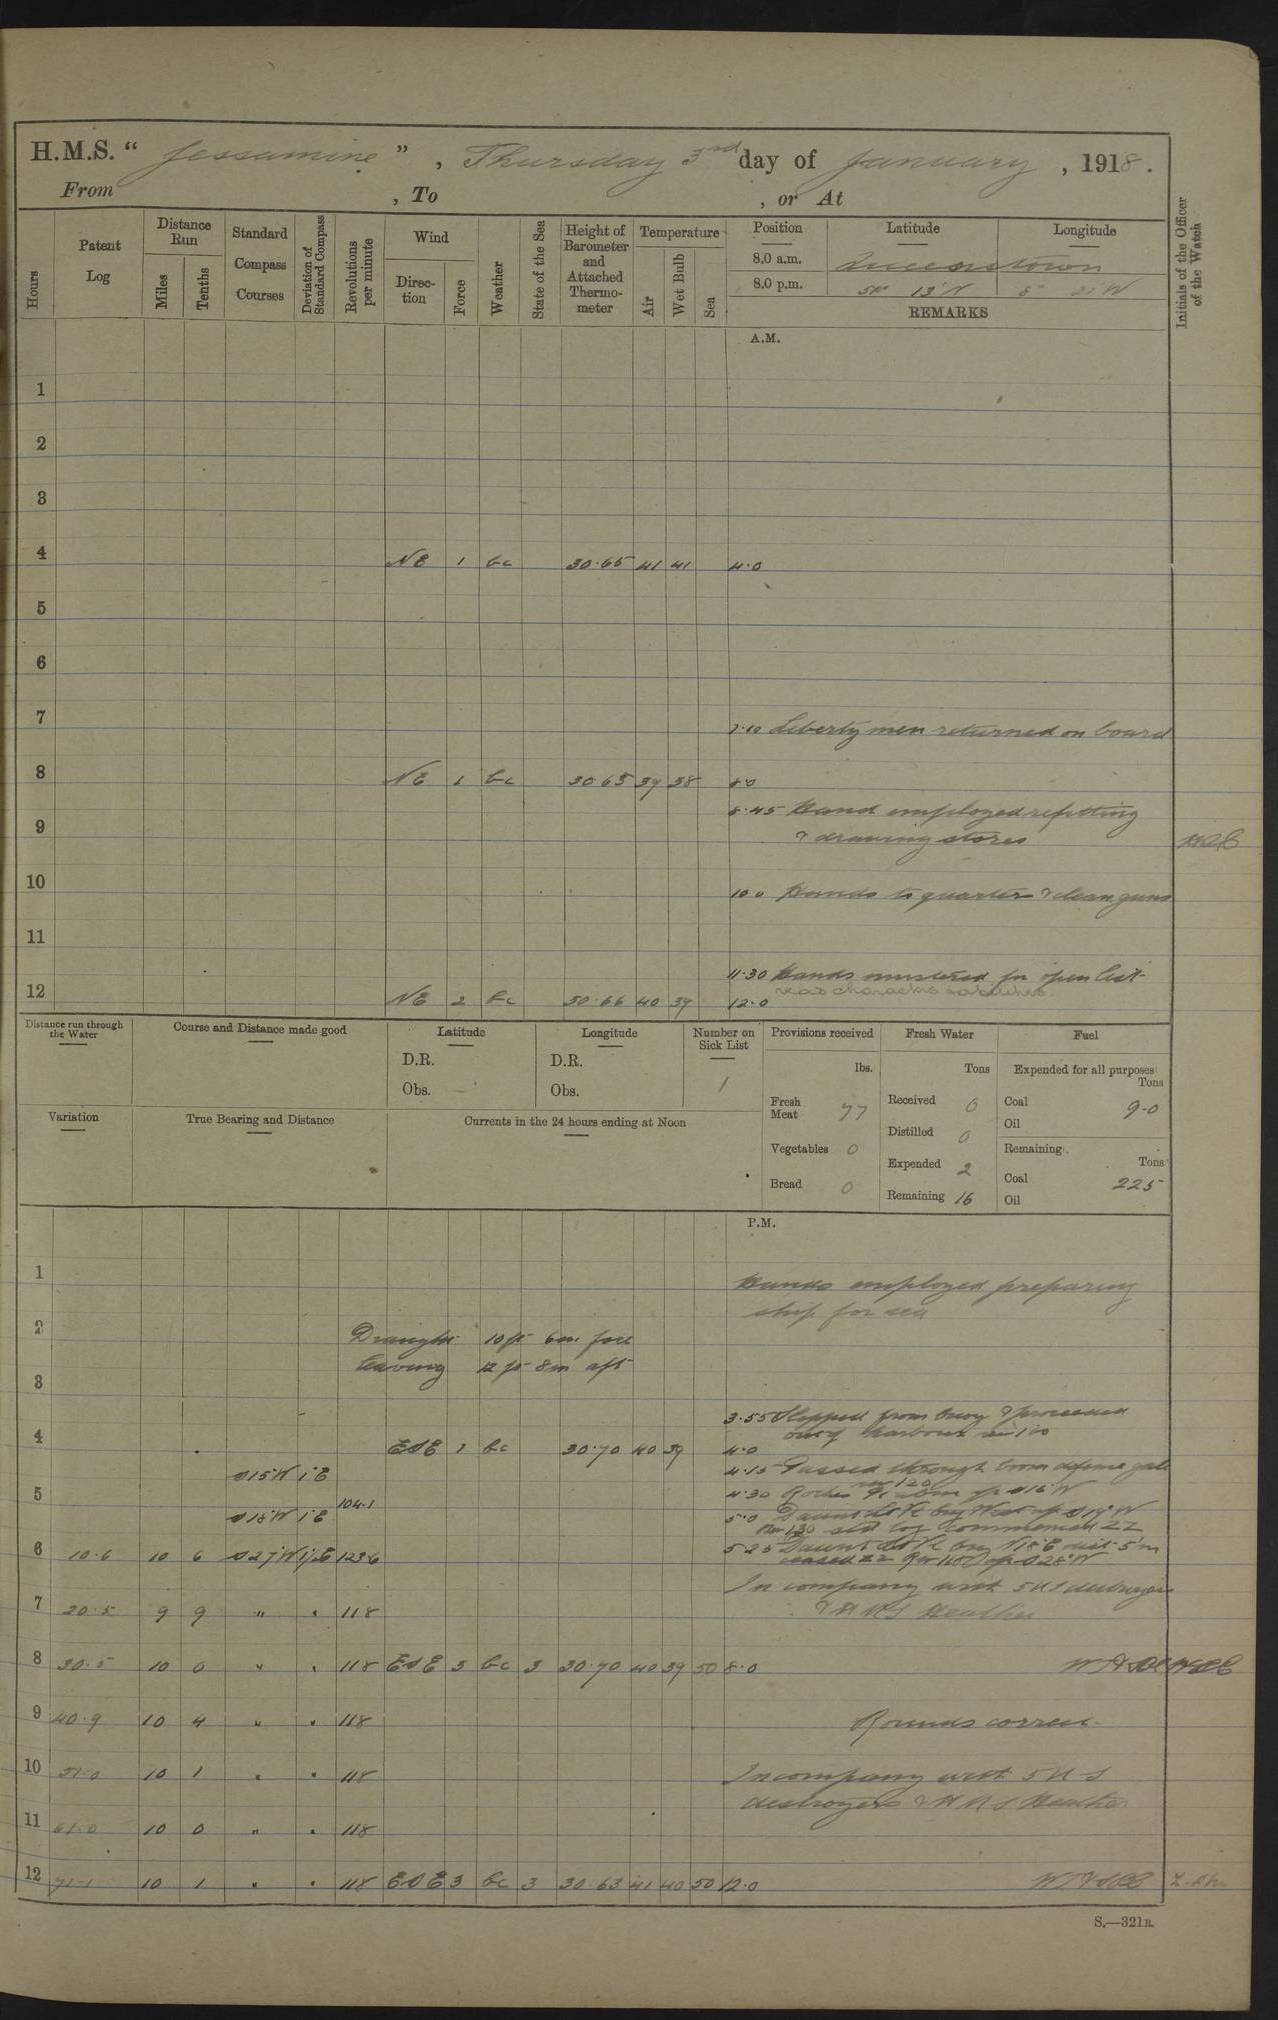 H.M.S. " Jessamine " , Thursday 3rd day of January , 1918 .
From , To , or At
Hours
Patent Log
Distance Run
Miles
Tenths
Standard Compass Courses
Deviation of Standard Compass
Revolutions per minute
Wind
Direction
Force
Weather
State of the Sea
Height of Barometer and Attached Thermometer
Temperature
Air
Wet Bulb
Sea
Position Latitude Longitude
8.0 a.m. Queenstown
8.0 p.m. 13' N W
REMARKS
Initials of the Officer of the Watch
A.M.
1
2
3
4 NE 1 bc 30.65 41 41 4.0
5
6
7
7.10 Liberty men returned on board
8 NE 1 bc 30.65 39 38 8.0
8.45 Hand employed refitting
9 & drawing stores
10 10.0 Hands to quarters & clean guns
11
11.30 Hands mustered for open list
12 NE 2 bc 30.66 40 39 12.0
Distance run through the Water
Course and Distance made good
Latitude
D.R.
Obs.
Longitude
D.R.
Obs.
Number on Sick List
1
Provisions received
lbs.
Fresh Meat 77
Vegetables 0
Bread 0
Fresh Water
Tons
Received 0
Distilled 0
Expended 2
Remaining 16
Fuel
Expended for all purposes
Tons
Coal 9.0
Oil
Remaining
Tons
Coal 225
Oil
Variation
True Bearing and Distance
Currents in the 24 hours ending at Noon
P.M.
1
Hands employed preparing
ship for sea
2 Draught 10 ft 6 in fore
leaving 12 ft 8 in aft
3
3.55 Slipped from buoy & proceeded
out of harbour
4 ESE 1 bc 30.70 40 39 4.0
S15°W 1°E 4.15 Passed through boom defence gate
5 104.1 4.30
S18°W 1°E 5.0
log commenced ZZ
6 10.6 10 6 S27°W 123.6 5.25
ceased ZZ
In company with 5 US destroyers
7 20.5 9 9 " " 118 & HMS Heather
8 30.5 10 0 " " 118 ESE 3 bc 3 30.70 40 39 50 8.0
9 40.9 10 4 " " 118 Rounds correct.
10 51.0 10 1 " " 118 In company with 5 U S
destroyers & H M S Heather
11 61.0 10 0 " " 118
12 71.1 10 1 " " 118 ESE 3 bc 3 30.63 41 40 50 12.0
S.—321B.